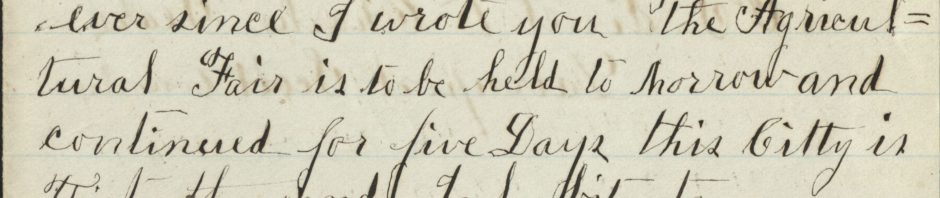 ever since I wrote you the Agricul=
tural Fair is to be held to morrow and
continued for five Days this Citty is